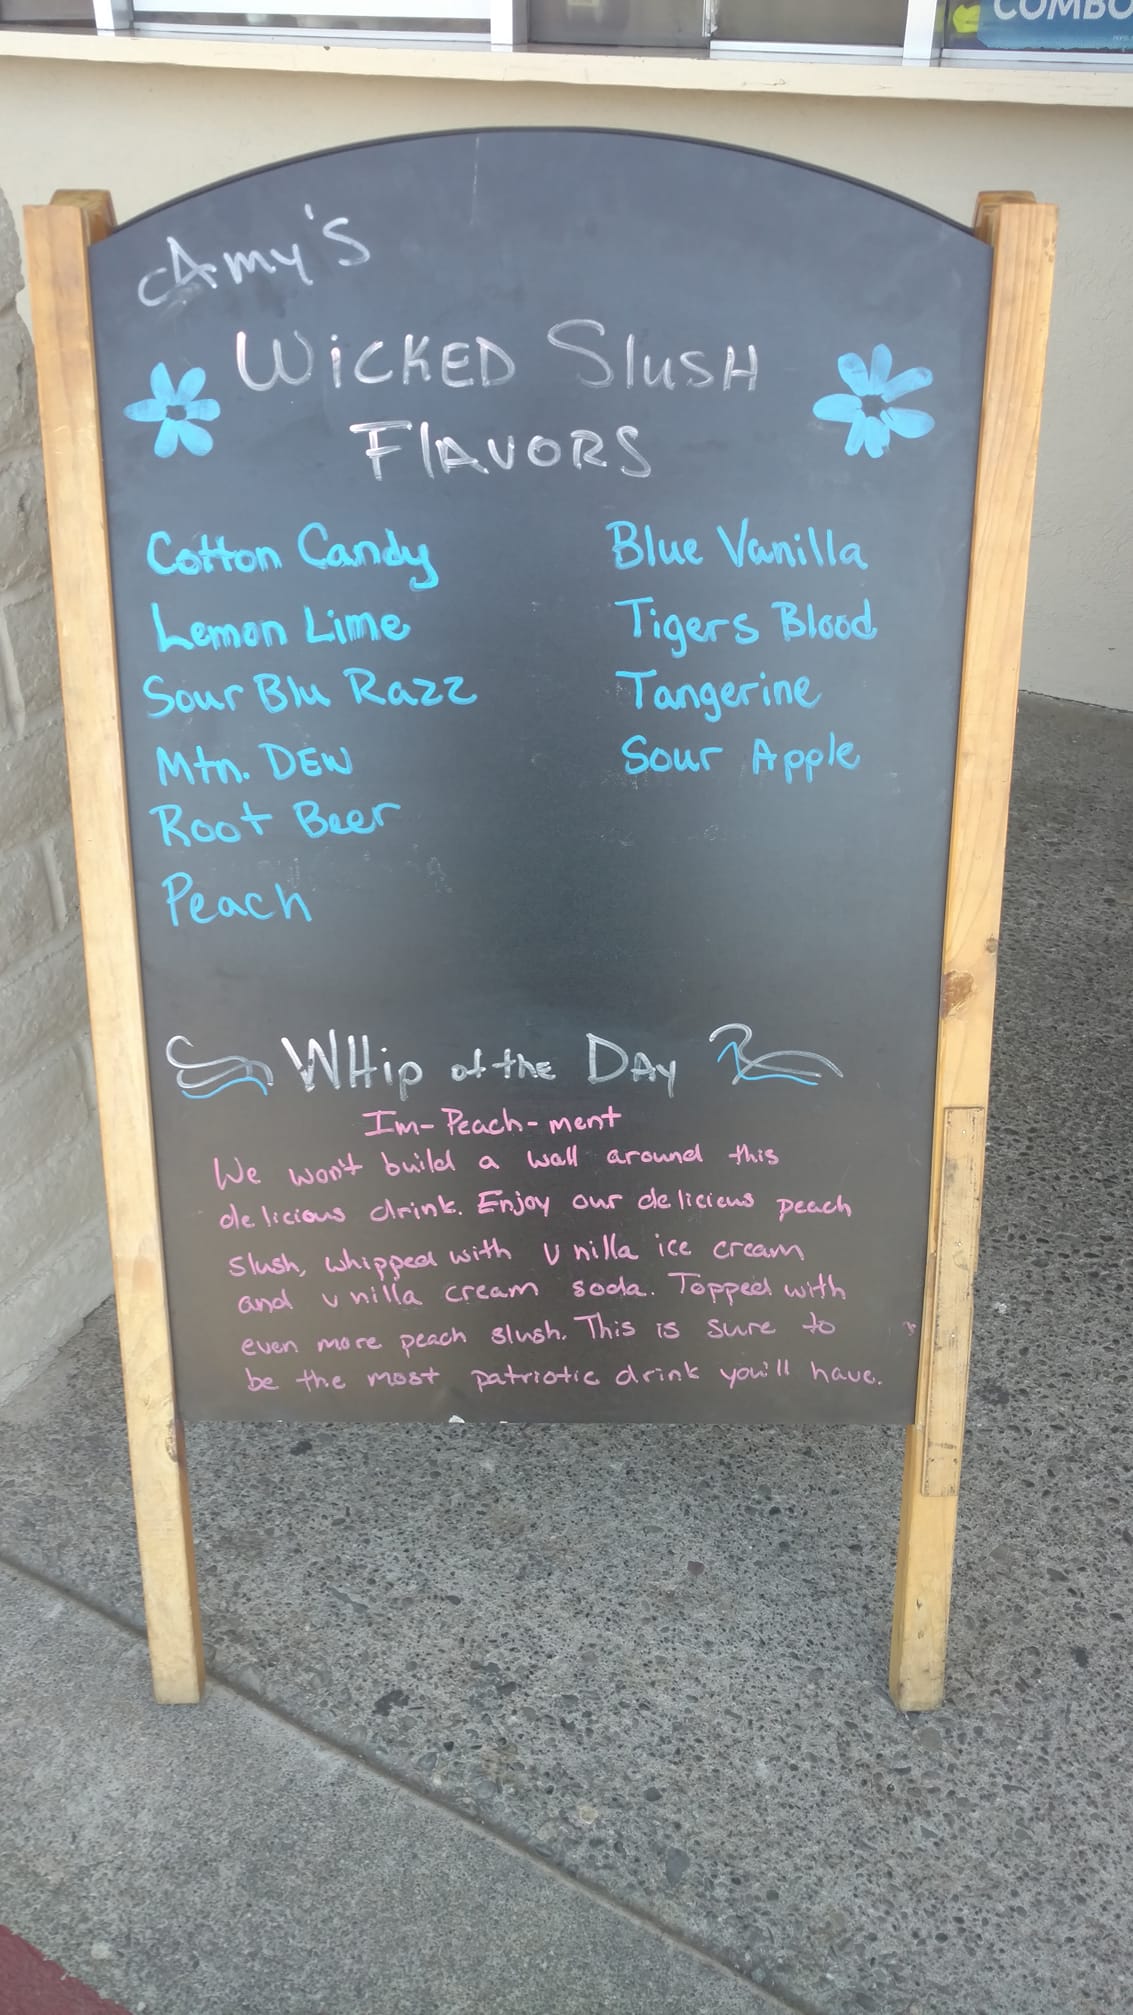 COMBO
Amy's
WicKED SlusH
FlAVORS
Cotton Candy
Lemon Lime
Sour Blu Razz
Mtn. DEW
Root Beer
Peach
Blue Vanilla
Tigers Blood
Tangerine
Sour Apple
WHip of the DAy
Im-Peach-ment
We won't build a wall around this
delicious drink. Enjoy our delicious peach
slush, whipped with v nilla ice cream
and v nilla cream soda. Topped with
even more peach slush. This is sure to
be the most patriotic drink you'll have.